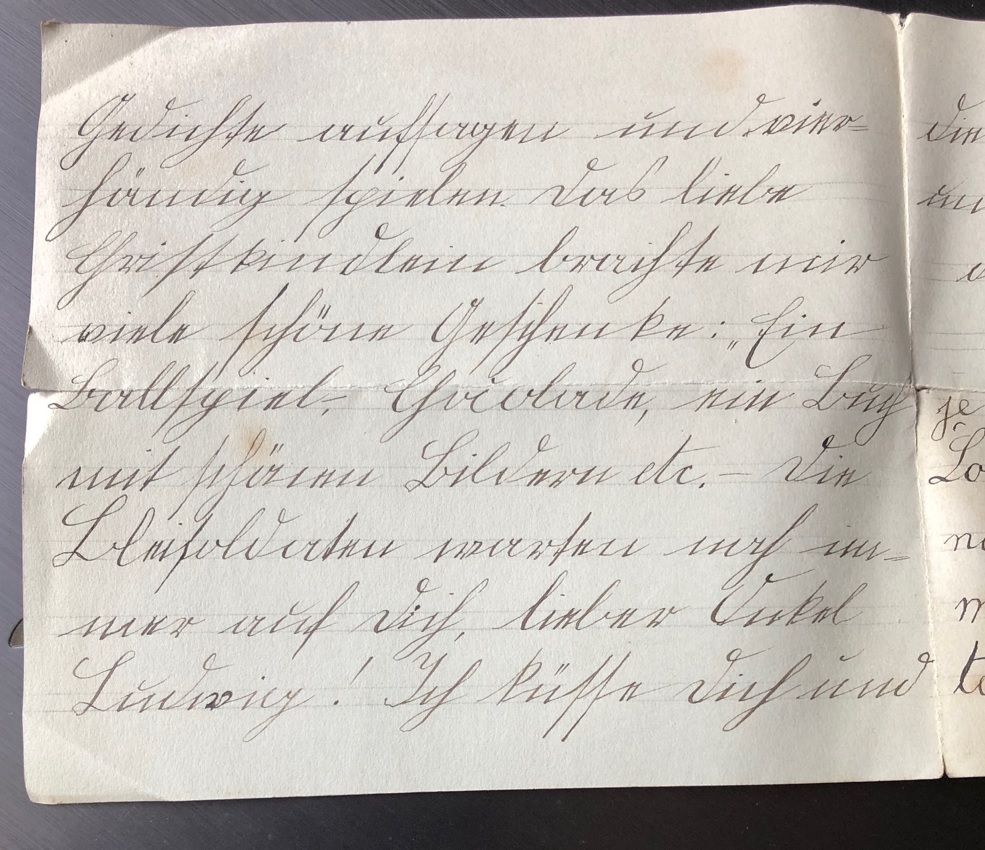 Gedichte aufsagen und vier-
händig spielen. Das liebe
Christkindlein brachte mir
viele schöne Geschenke: „Ein
Ballspiel, Chocolade, ein Buch
mit schönen Bildern etc. – Die
Bleisoldaten warten noch im-
mer auf Dich, lieber Onkel
Ludwig! Ich küsse Dich und
die
je